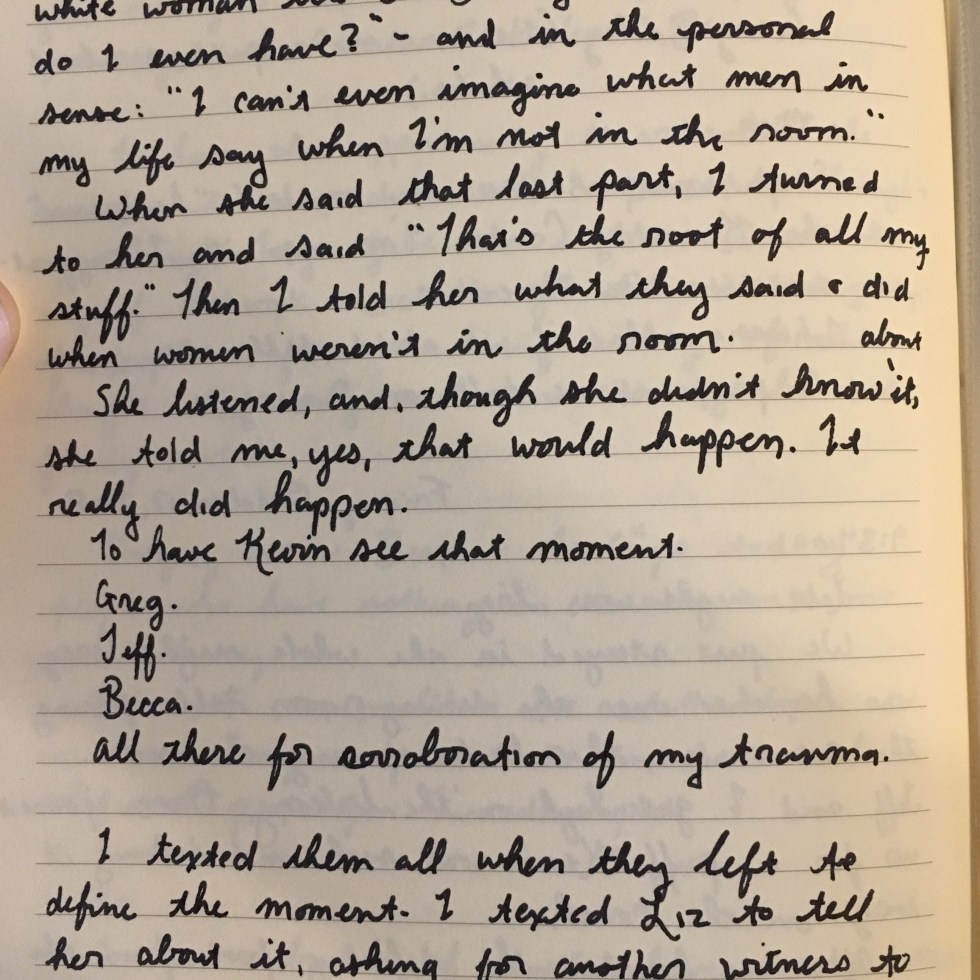 white woman
do I even have?" - and in the personal
sense: "I can't even imagine what men in
my life say when I'm not in the room."
When she said that last part, I turned
to her and said "That's the root of all my
stuff." Then I told her what they said & did
when women weren't in the room.
about
She listened, and, though she didn't know it,
she told me, yes, that would happen. It
really did happen.
To have Kevin see that moment.
Greg.
Jeff.
Becca.
All there for corroboration of my trauma.
I texted them all when they left to
define the moment. I texted Liz to tell
her about it, asking for another witness to